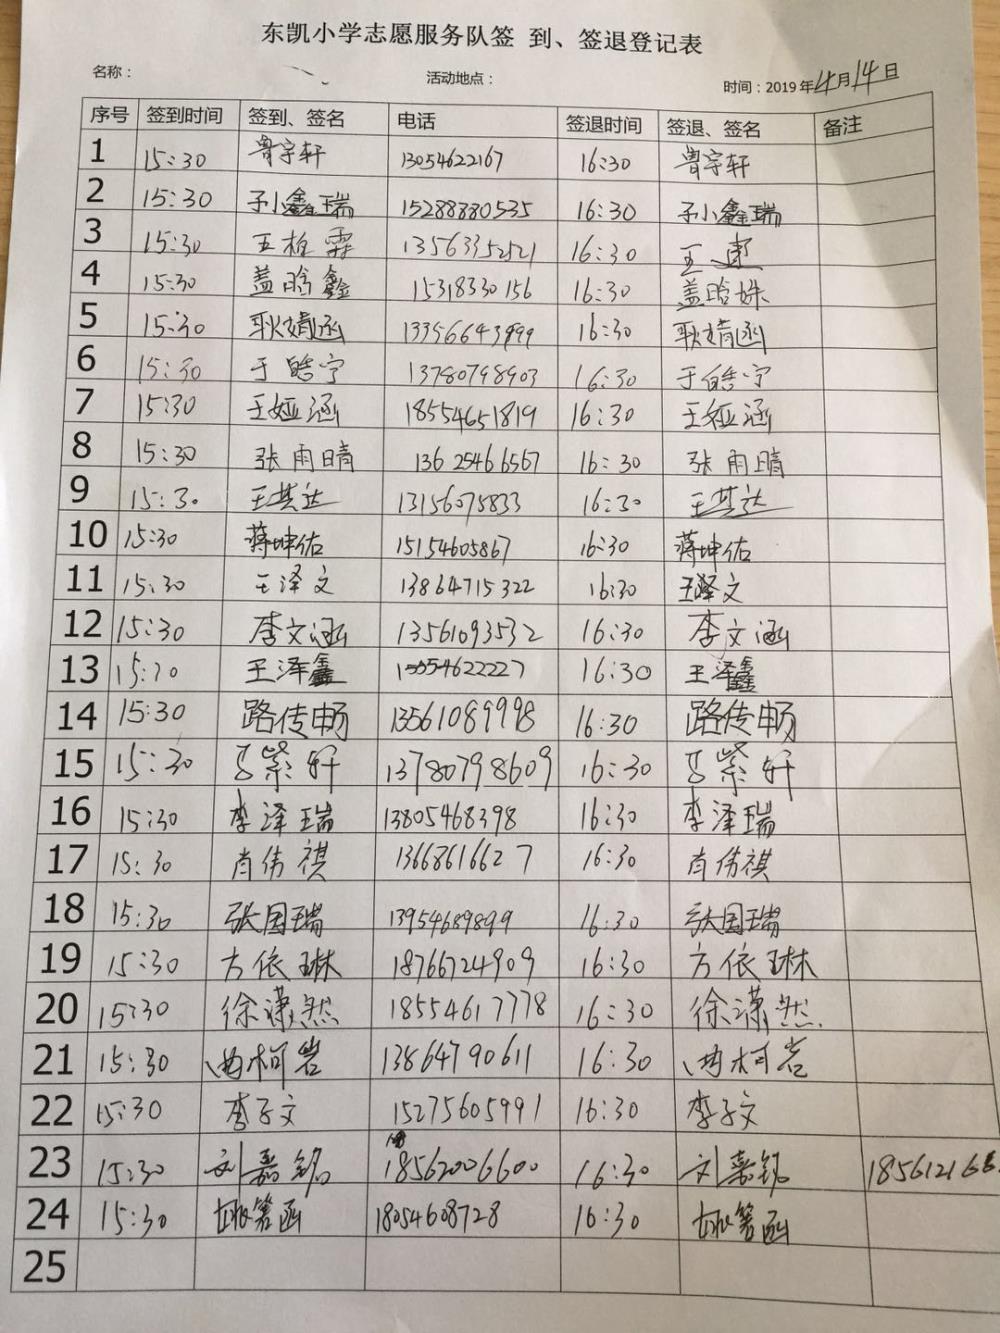 东凯小学志愿服务队签 到、签退登记表
名称： 活动地点： 时间：2019年4月14日
序号 签到时间 签到、签名 电话 签退时间 签退、签名 备注
1 15:30 鲁宇轩 13054622167 16:30 鲁宇轩
2 15:30 小鑫瑞 15288880535 16:30 小鑫瑞
3 15:30 王柏霖 13563352521 16:30 王
4 15:30 盖晗鑫 15318330156 16:30 盖晗姝
5 15:30 耿婧函 13356643999 16:30 耿婧函
6 15:30 于皓宁 13780798903 16:30 于皓宁
7 15:30 王娅涵 18554651819 16:30 王娅涵
8 15:30 张雨晴 13625466567 16:30 张雨晴
9 15:30 王其达 13156075833 16:30 王其达
10 15:30 蒋坤佑 15154605867 16:30 蒋坤佑
11 15:30 王泽文 13864715322 16:30 王泽文
12 15:30 李文涵 13561093532 16:30 李文涵
13 15:30 王泽鑫 15054622227 16:30 王泽鑫
14 15:30 路传畅 13561089998 16:30 路传畅
15 15:30 紫轩 13780798609 16:30 紫轩
16 15:30 李泽瑞 13805468398 16:30 李泽瑞
17 15:30 肖伟祺 13668616627 16:30 肖伟祺
18 15:30 张国瑞 13954689899 16:30 张国瑞
19 15:30 方依琳 18766724909 16:30 方依琳
20 15:30 徐潇然 18554617778 16:30 徐潇然
21 15:30 柯岩 13864790611 16:30 柯岩
22 15:30 李子文 15275605991 16:30 李子文
23 15:30 刘嘉铭 18562006600 16:30 刘嘉铭 185612166
24 15:30 姚箬函 18054608728 16:30 姚箬函
25